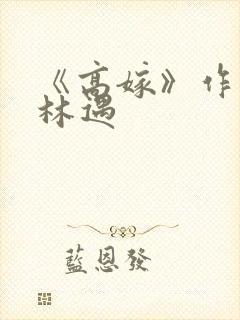 《高嫁》作
林遇
藍恩發